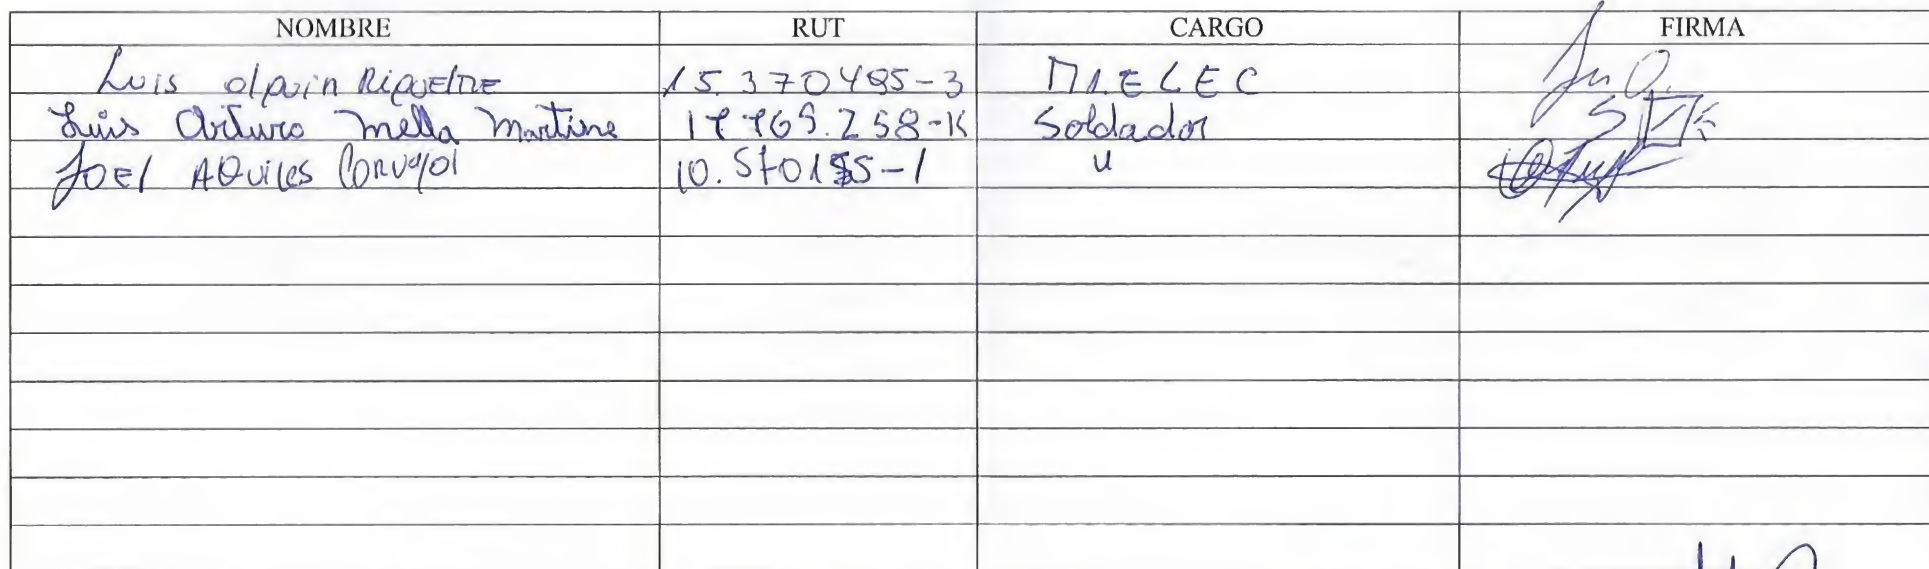 NOMBRE RUT CARGO FIRMA
Luis Olguin Riquelme 15.370495-3 M.ELEC
Luis Arturo Mella Martine 17.769.258-K Soldador
Joel Aquiles Carvajol 10.570155-1 "